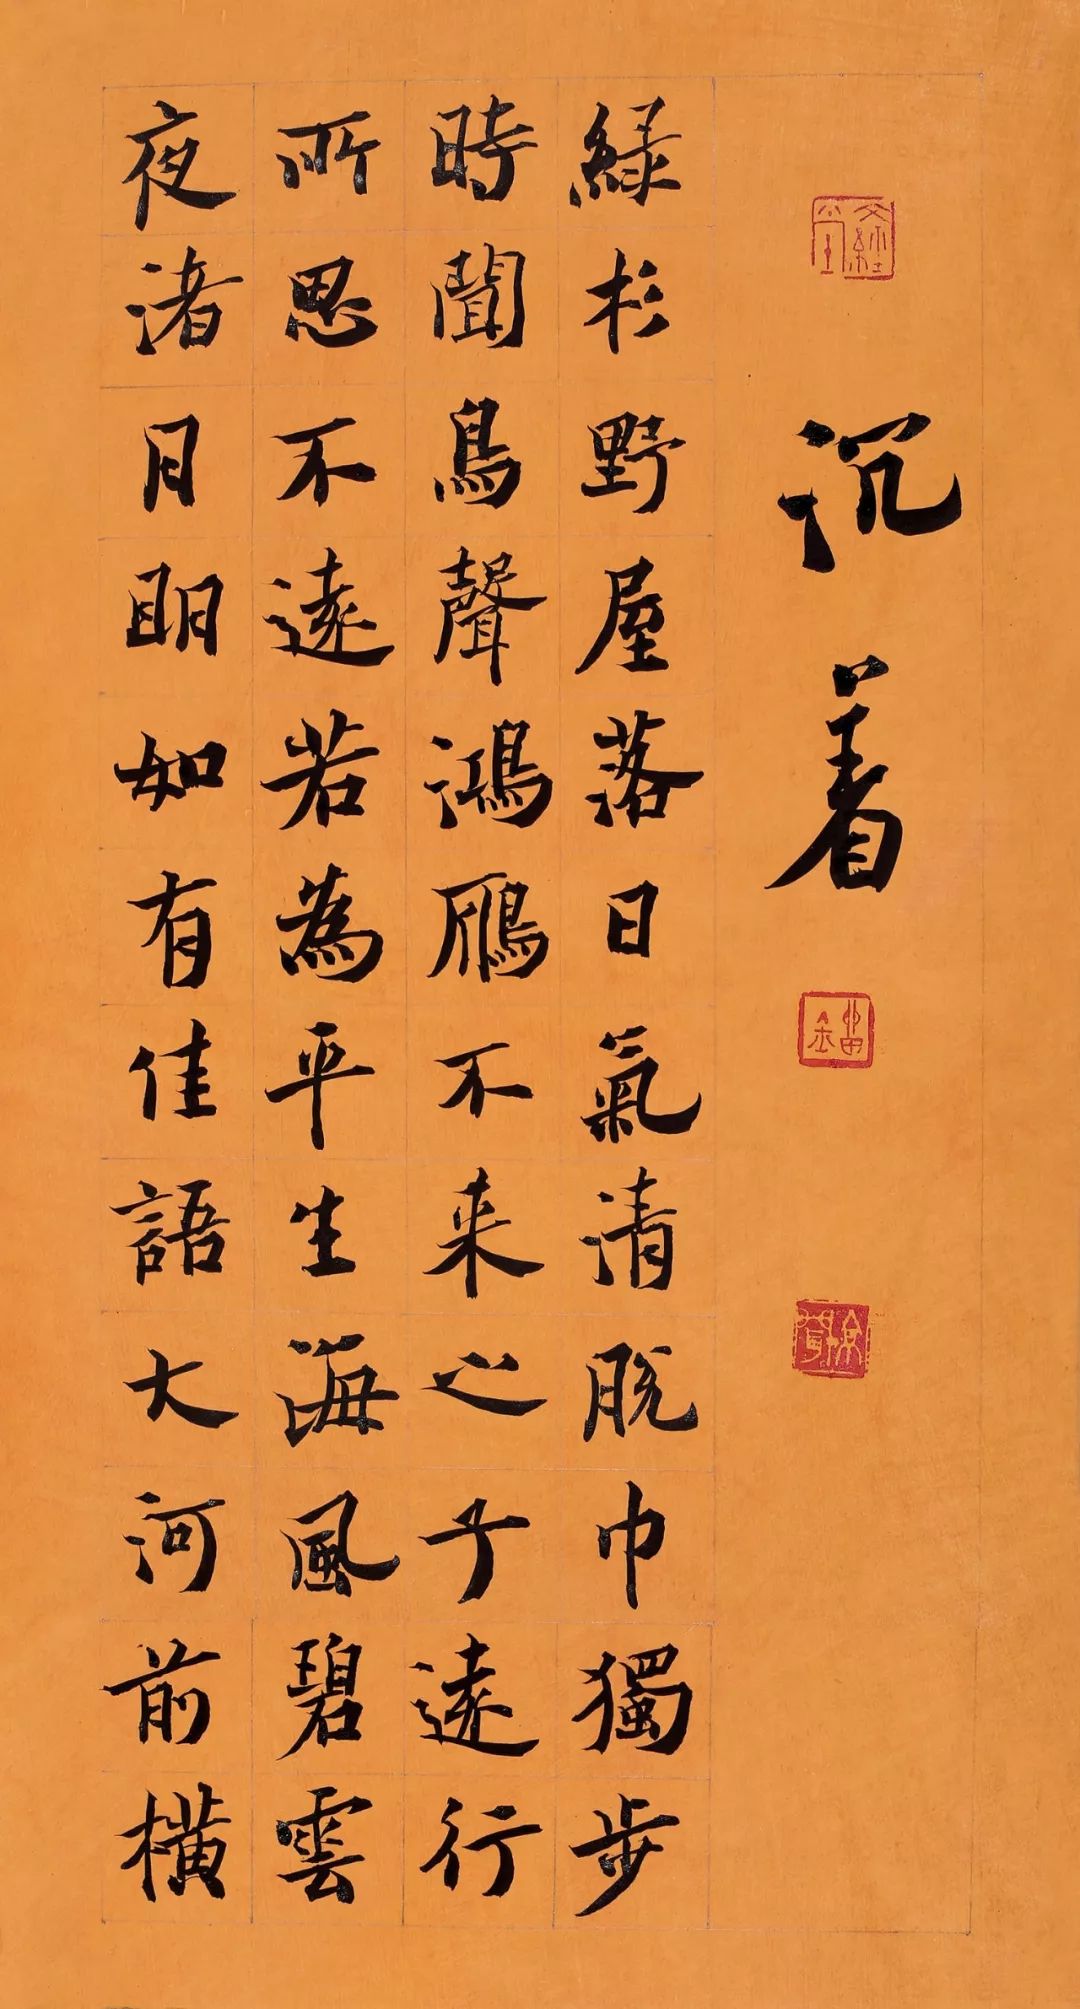 沉着
緑杉野屋落日氣清脫巾獨步
時聞鳥聲鴻鴈不来之子遠行
所思不遠若為平生海風碧雲
夜渚月明如有佳語大河前横